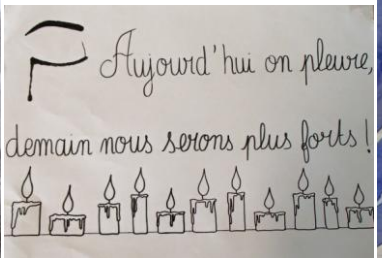 Aujourd'hui on pleure,
demain nous serons plus forts !